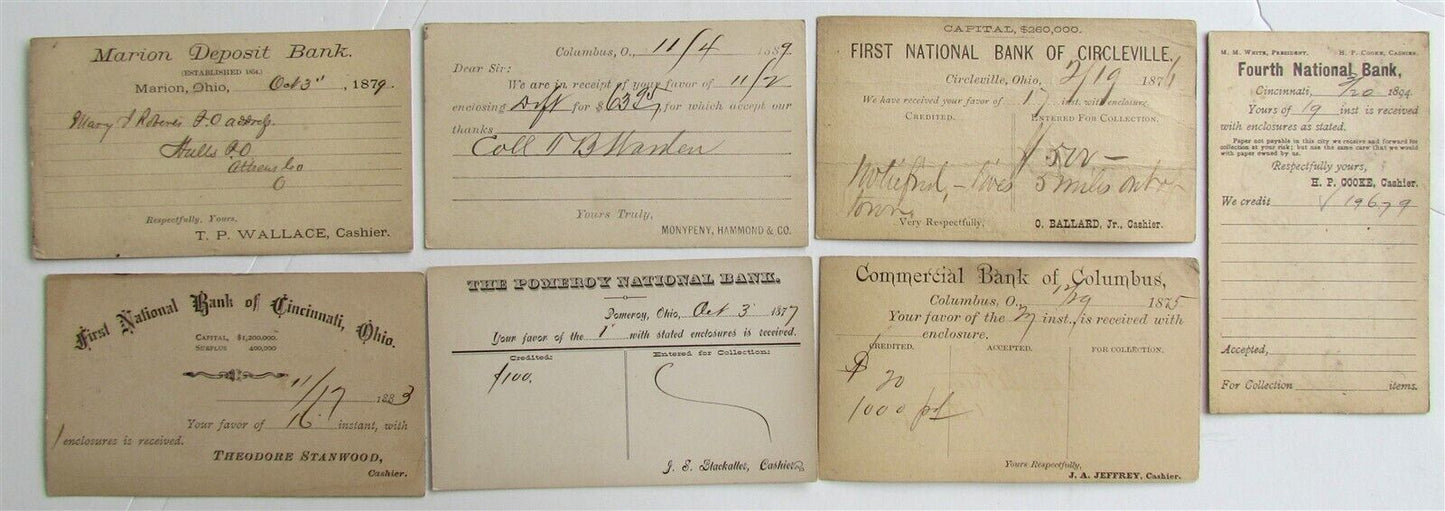 Marion Deposit Bank.
(ESTABLISHED 1854.)
Marion, Ohio, Oct 3" , 1879.
Mary J Roberts P.O address
Hulls P.O
Athens Co
O
Respectfully, Yours,
T. P. WALLACE, Cashier.
Columbus, O., 11/4 1889
Dear Sir:
We are in receipt of your favor of 11/2
enclosing Dft for $63 for which accept our
thanks
Coll T B Warden
Yours Truly,
MONYPENY, HAMMOND & CO.
CAPITAL, $260,000.
FIRST NATIONAL BANK OF CIRCLEVILLE,
Circleville, Ohio, 2/19 187
We have received your favor of 17 inst. with enclosure.
CREDITED. ENTERED FOR COLLECTION.
$500 —
Notified, - lives 5 miles out of
town
Very Respectfully, O. BALLARD, Jr., Cashier.
M. M. WHITE, PRESIDENT. H. P. COOKE, CASHIER.
Fourth National Bank,
Cincinnati, 2/20 1894.
Yours of 19 inst is received
with enclosures as stated.
Paper not payable in this city we receive and forward for
collection at your risk; but use the same care that we would
with paper owned by us.
Respectfully yours,
H. P. COOKE, Cashier.
We credit 19679
Accepted,
For Collection items.
First National Bank of Cincinnati, Ohio.
CAPITAL, $1,200,000.
SURPLUS 400,000
11/17 1883
Your favor of 16 instant, with
1 enclosures is received.
THEODORE STANWOOD,
Cashier.
THE POMEROY NATIONAL BANK.
Pomeroy, Ohio, Oct 3 1877
Your favor of the 1" with stated enclosures is received.
Credited: Entered for Collection:
$100.
J. S. Blackaller, Cashier
Commercial Bank of Columbus,
Columbus, O., 12/29 1875
Your favor of the 27 inst., is received with
enclosure.
CREDITED. ACCEPTED. FOR COLLECTION.
$ 20
1000 pd
Yours Respectfully,
J. A. JEFFREY, Cashier.